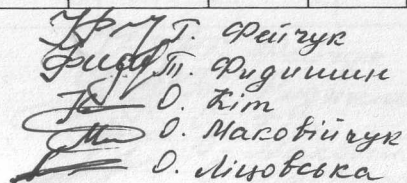 Г. Фейчук
Т. Фидишин
О. Кіт
О. Маковійчук
О. Ліцовська